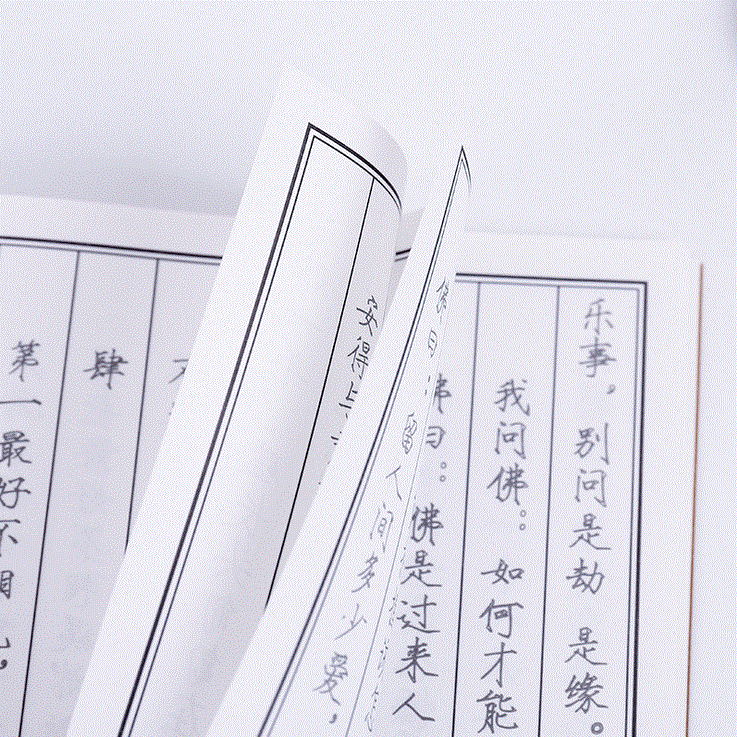 乐事，别问是劫 是缘。
我问佛：如何才能
佛曰：佛是过来人
留人间多少爱，
安得与
肆
第一最好不相